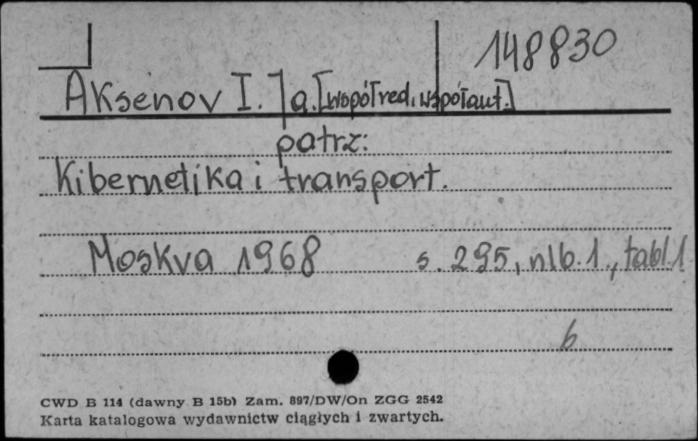 148830
Aksenov I. Ja. [współred. współaut.]
patrz:
Kibernetika i transport.
Moskva 1968 s. 295, nlb. 1., tabl. 1
b
CWD B 114 (dawny B 15b) Zam. 897/DW/On ZGG 2542
Karta katalogowa wydawnictw ciągłych i zwartych.